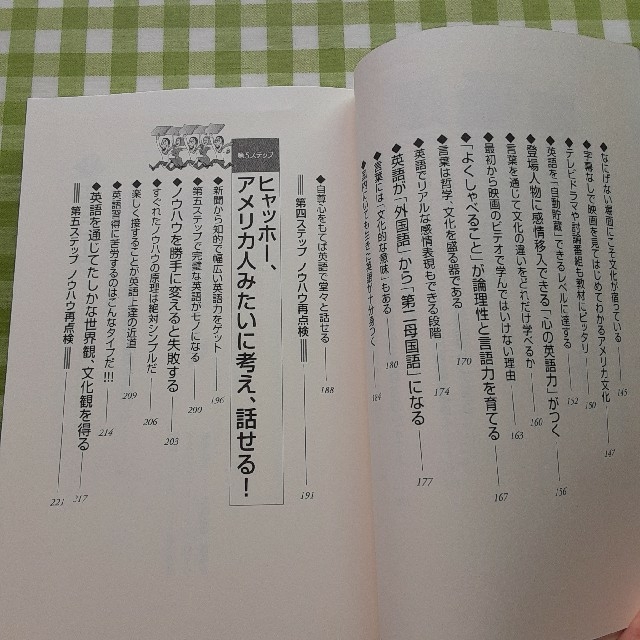 なにげない場面にこそ文化が宿っている 145
◆字幕なしで映画を見てはじめてわかるアメリカ文化 147
◆テレビドラマや討論番組も教材にピッタリ 150
◆英語を「自動貯蔵」できるレベルに達する 152
◆登場人物に感情移入できる「心の英語力」がつく 156
◆言葉を通じて文化の違いをどれだけ学べるか 160
◆最初から映画のビデオで学んではいけない理由 163
◆「よくしゃべること」が論理性と言語力を育てる 167
◆言葉は哲学、文化を盛る器である 170
◆英語でリアルな感情表現もできる段階 174
◆英語が「外国語」から「第二母国語」になる 177
◆言葉には「文化的な意味」もある 180
184
◆自尊心をもてば英語で堂々と話せる 188
第四ステップ ノウハウ再点検 191
第5ステップ
ヒャッホー、
アメリカ人みたいに考え、話せる!
◆新聞から知的で幅広い英語力をゲット 196
◆第五ステップで完璧な英語がモノになる 200
◆ノウハウを勝手に変えると失敗する 203
◆すぐれたノウハウの原理は絶対シンプルだ 206
◆楽しく接することが英語上達の近道 209
◆英語習得に苦労するのはこんなタイプだ!!! 214
◆英語を通じてたしかな世界観、文化観を得る 217
第五ステップ ノウハウ再点検 221